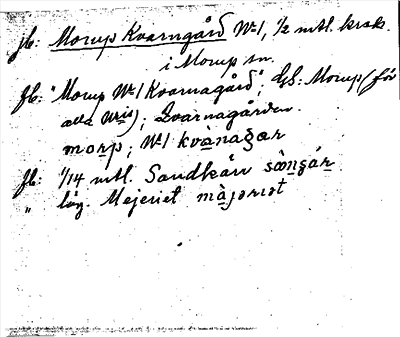 jb: Morup Kvarngård Nr 1, 1/2 mtl. krsk.
i Morup sn.
Jb: "Morup Nr 1 Kvarnagård"; GS: Morup (för
alla nris); Qvarnagården.
morp; Nr 1 kvànagar
Jb: 1/14 mtl. Sandkärr
" läg. Mejeriet màjəriət